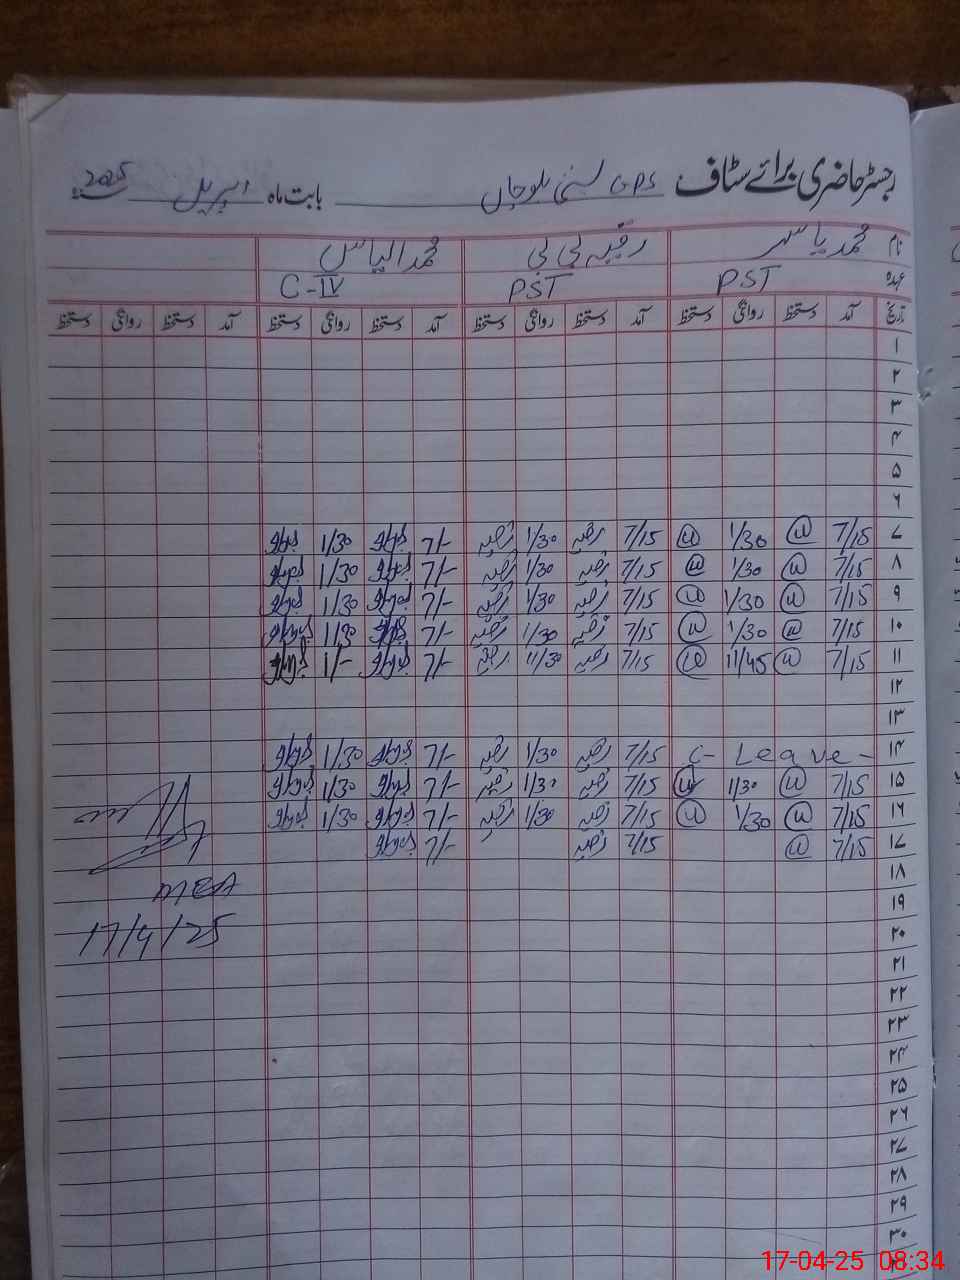 رجسٹر حاضری برائے سٹاف GPS بستی بلوچاں بابت ماہ اپریل 2025
نام محمد یاسر رقیہ بی بی محمد الیاس
عہدہ PST PST C-IV
تاریخ آمد دستخط روانگی دستخط آمد دستخط روانگی دستخط آمد دستخط روانگی دستخط آمد دستخط روانگی دستخط
۱
۲
۳
۴
۵
۶
۷ 7/15 1/30 7/15 رقیہ 1/30 رقیہ 7/- 1/30
۸ 7/15 1/30 7/15 رقیہ 1/30 رقیہ 7/- 1/30
۹ 7/15 1/30 7/15 رقیہ 1/30 رقیہ 7/- 1/30
۱۰ 7/15 1/30 7/15 رقیہ 1/30 رقیہ 7/- 1/30
۱۱ 7/15 11/45 7/15 رقیہ 11/30 رقیہ 7/- 1/-
۱۲
۱۳
۱۴ C- Leave - 7/15 رقیہ 1/30 رقیہ 7/- 1/30
۱۵ 7/15 1/30 7/15 رقیہ 1/30 رقیہ 7/- 1/30
۱۶ 7/15 1/30 7/15 رقیہ 1/30 رقیہ 7/- 1/30
۱۷ 7/15 7/15 رقیہ 7/-
۱۸
MEA
۱۹
۲۰
17/4/25
۲۱
۲۲
۲۳
۲۴
۲۵
۲۶
۲۷
۲۸
۲۹
۳۰
17-04-25 08:34